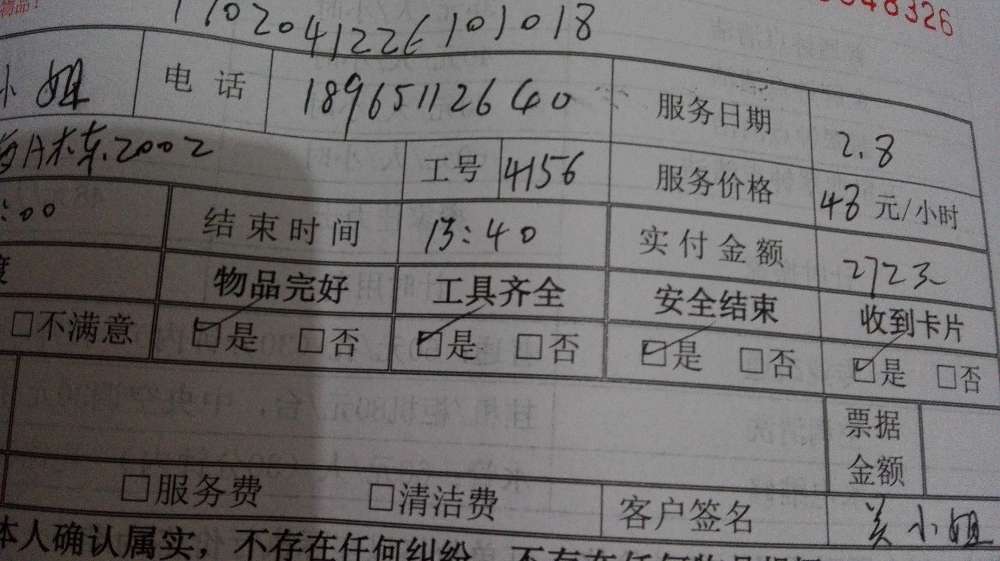 物品！
1702041226101018
小姐 电话 18965112640 服务日期 2.8
2002 工号 4156 服务价格 48元/小时
:00 结束时间 13:40 实付金额 272元
度 物品完好 工具齐全 安全结束 收到卡片
□不满意 ☑是 □否 ☑是 □否 ☑是 □否 ☑是 □否
票据
金额
□服务费 □清洁费 客户签名 吴小姐
本人确认属实，不存在任何纠纷，不存在任何物品损坏